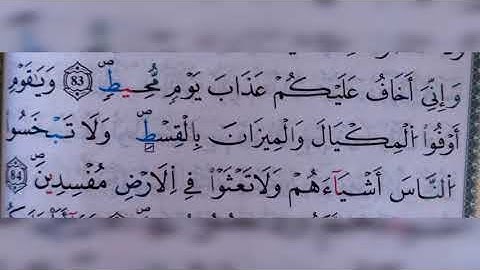 وَإِنِّيَ أَخَافُ عَلَيْكُمْ عَذَابَ يَوْمٖ مُّحِيطٖ 83 وَيَٰقَوْمِ
أَوْفُواْ اُ۬لْمِكْيَالَ وَالْمِيزَانَ بِالْقِسْطِ وَلَا تَبْخَسُواْ
اُ۬لنَّاسَ أَشْيَآءَهُمْ وَلَا تَعْثَوْاْ فِے اِ۬لَارْضِ مُفْسِدِينَ 84